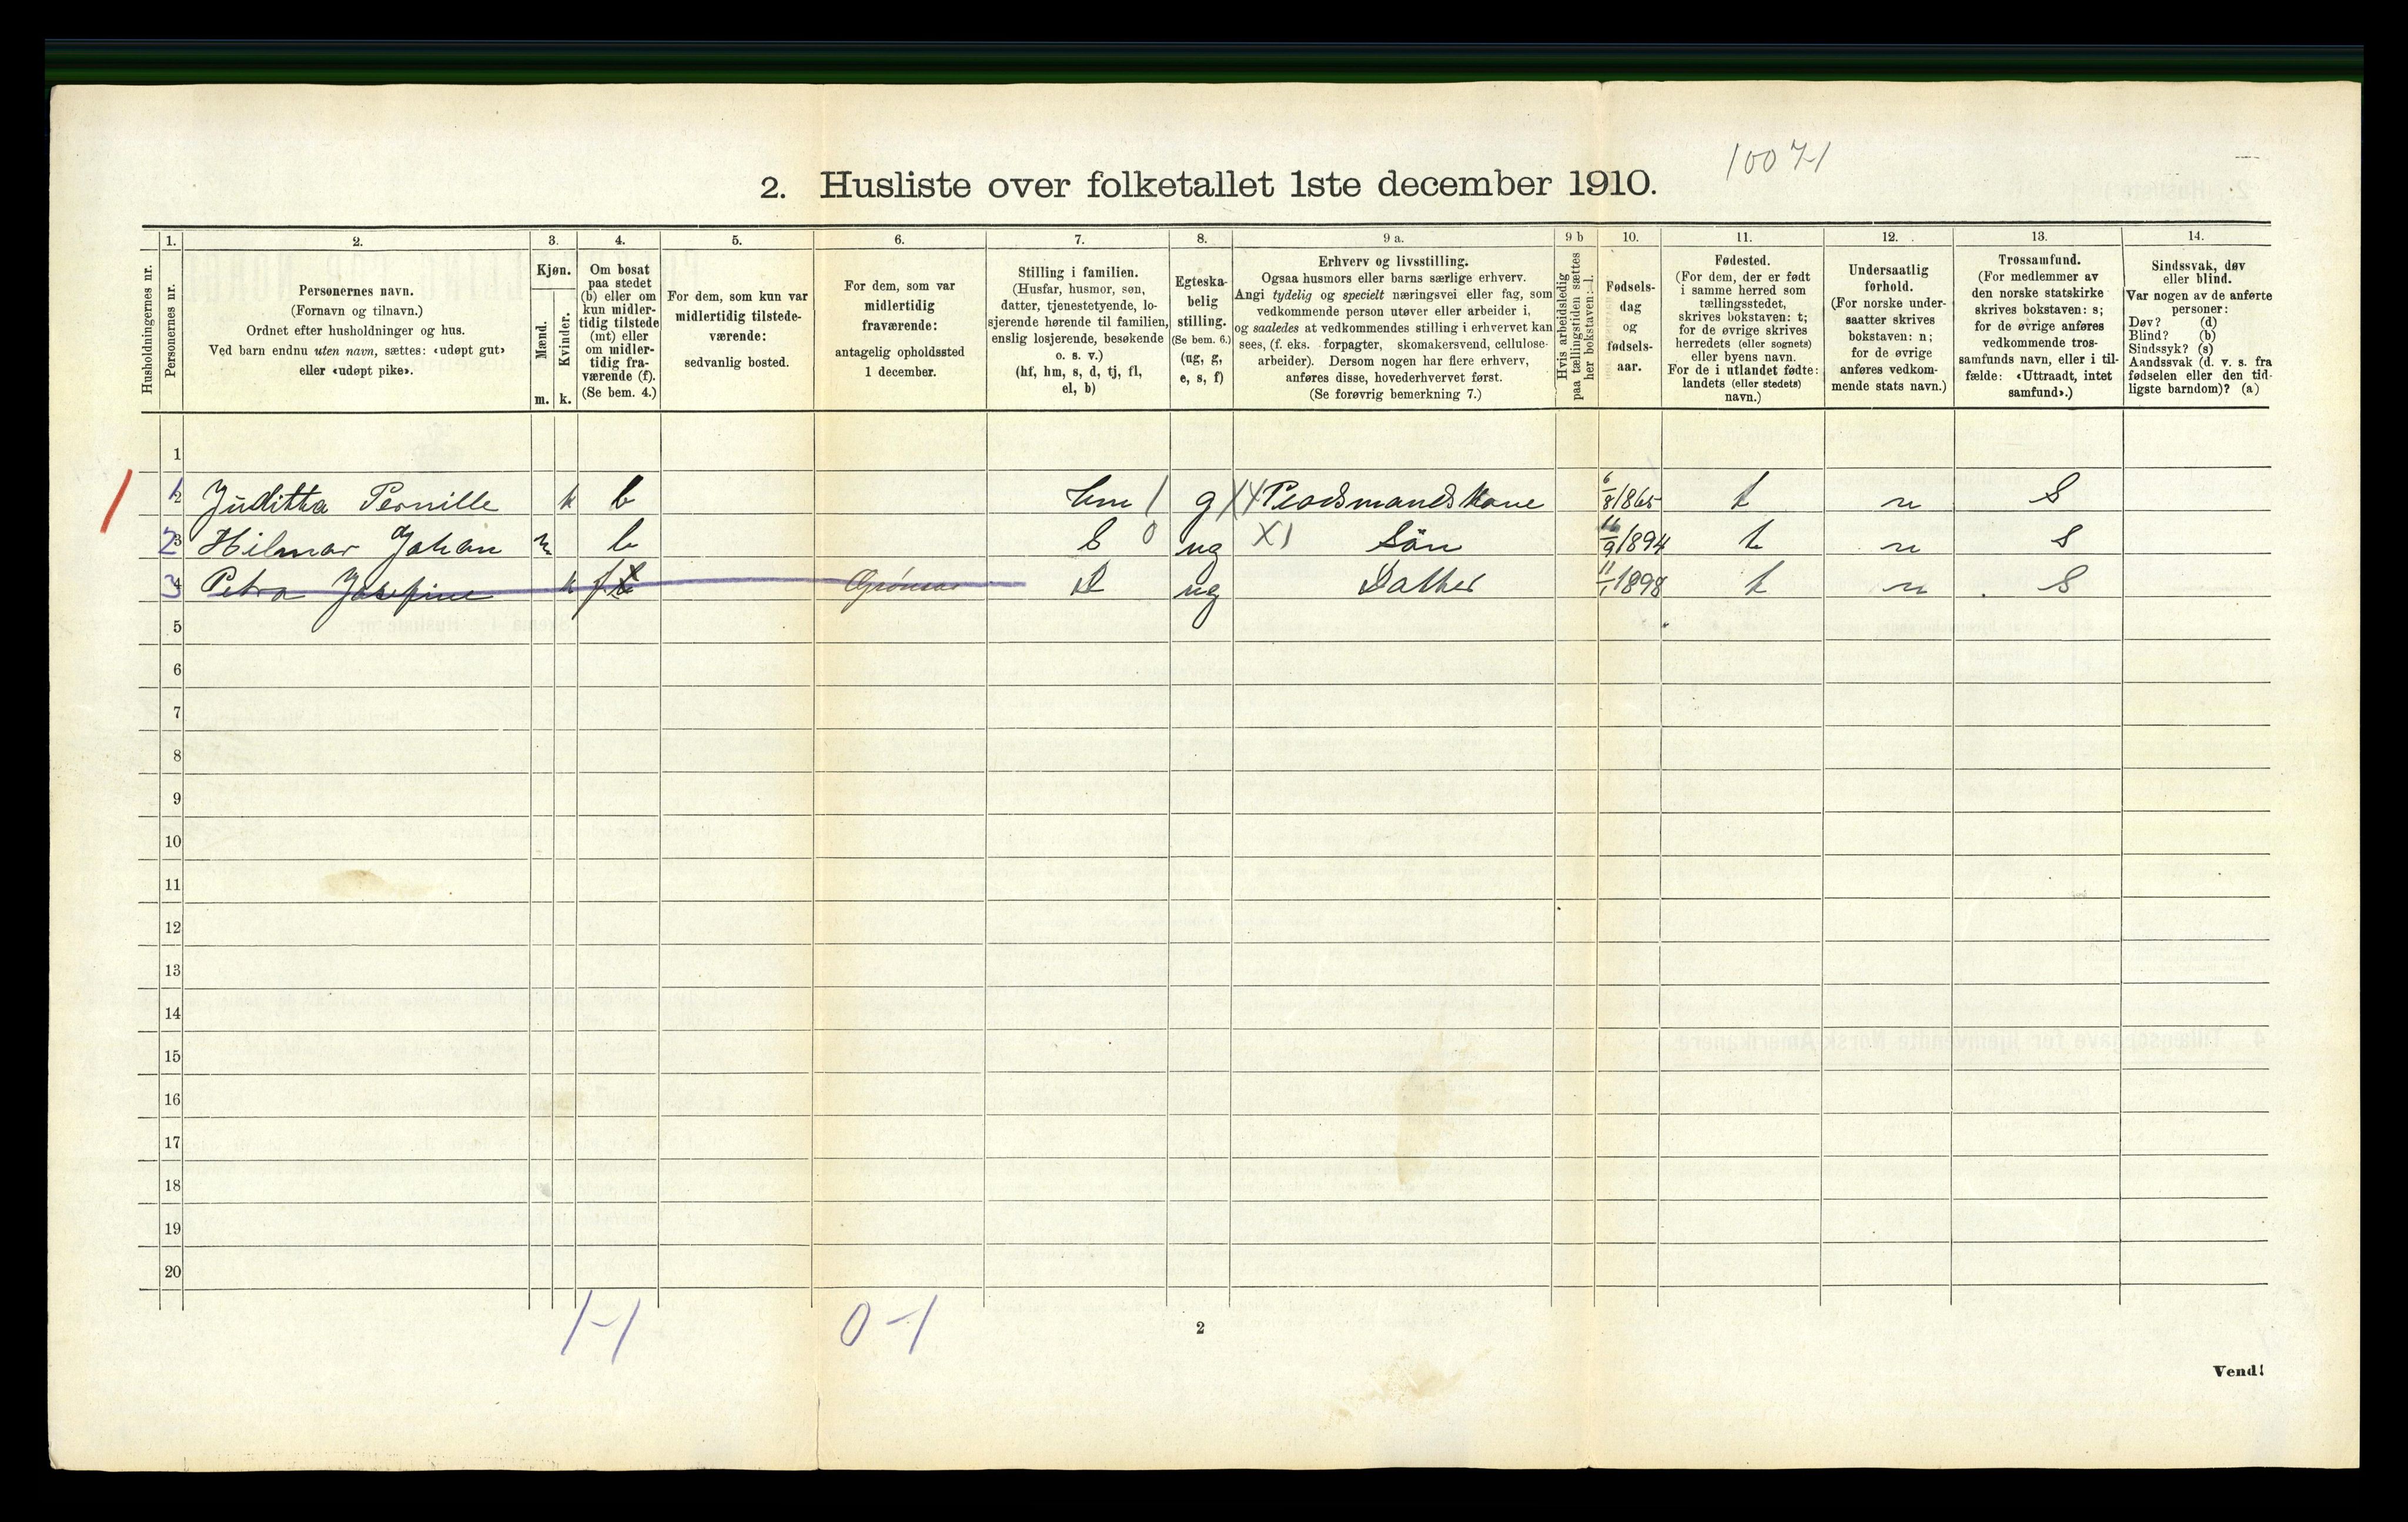 10071
2. Husliste over folketallet 1ste december 1910.
Husholdningernes nr.
1.
Personernes nr.
2.
Personernes navn.
(Fornavn og tilnavn.)
Ordnet efter husholdninger og hus.
Ved barn endnu uten navn, sættes: «udøpt gut»
eller «udøpt pike».
3.
Kjøn.
Mænd.
Kvinder.
m. k.
4.
Om bosat
paa stedet
(b) eller om
kun midler-
tidig tilstede
(mt) eller
om midler-
tidig fra-
værende (f).
(Se bem. 4.)
5.
For dem, som kun var
midlertidig tilstede-
værende:
sedvanlig bosted.
6.
For dem, som var
midlertidig
fraværende:
antagelig opholdssted
1 december.
7.
Stilling i familien.
(Husfar, husmor, søn,
datter, tjenestetyende, lo-
sjerende hørende til familien,
enslig losjerende, besøkende
o. s. v.)
(hf, hm, s, d, tj, fl,
el, b)
8.
Egteska-
belig
stilling.
(Se bem. 6.)
(ug, g,
e, s, f)
9 a.
Erhverv og livsstilling.
Ogsaa husmors eller barns særlige erhverv.
Angi tydelig og specielt næringsvei eller fag, som
vedkommende person utøver eller arbeider i,
og saaledes at vedkommendes stilling i erhvervet kan
sees, (f. eks. forpagter, skomakersvend, cellulose-
arbeider). Dersom nogen har flere erhverv,
anføres disse, hovederhvervet først.
(Se forøvrig bemerkning 7.)
9 b
Hvis arbeidsledig
paa tællingstiden sættes
her bokstaven: l.
10.
Fødsels-
dag
og
fødsels-
aar.
11.
Fødested.
(For dem, der er født
i samme herred som
tællingsstedet,
skrives bokstaven: t;
for de øvrige skrives
herredets (eller sognets)
eller byens navn.
For de i utlandet fødte:
landets (eller stedets)
navn.)
12.
Undersaatlig
forhold.
(For norske under-
saatter skrives
bokstaven: n;
for de øvrige
anføres vedkom-
mende stats navn.)
13.
Trossamfund.
(For medlemmer av
den norske statskirke
skrives bokstaven: s;
for de øvrige anføres
vedkommende tros-
samfunds navn, eller i til-
fælde: «Uttraadt, intet
samfund».)
14.
Sindssvak, døv
eller blind.
Var nogen av de anførte
personer:
Døv? (d)
Blind? (b)
Sindssyk? (s)
Aandssvak (d. v. s. fra
fødselen eller den tid-
ligste barndom)? (a)
1
1 2 Juditha Pernille k b hm 1 g X4 kone 6/8 1865 t n S
2 3 Hilmar Johan m b S 0 ug X1 Sön 9 1894 t n S
3 4 Petra Josefine k f b D ug Datter 11/1 1898 t n S
5
6
7
8
9
10
11
12
13
14
15
16
17
18
19
20
1-1 0-1
2
Vend!